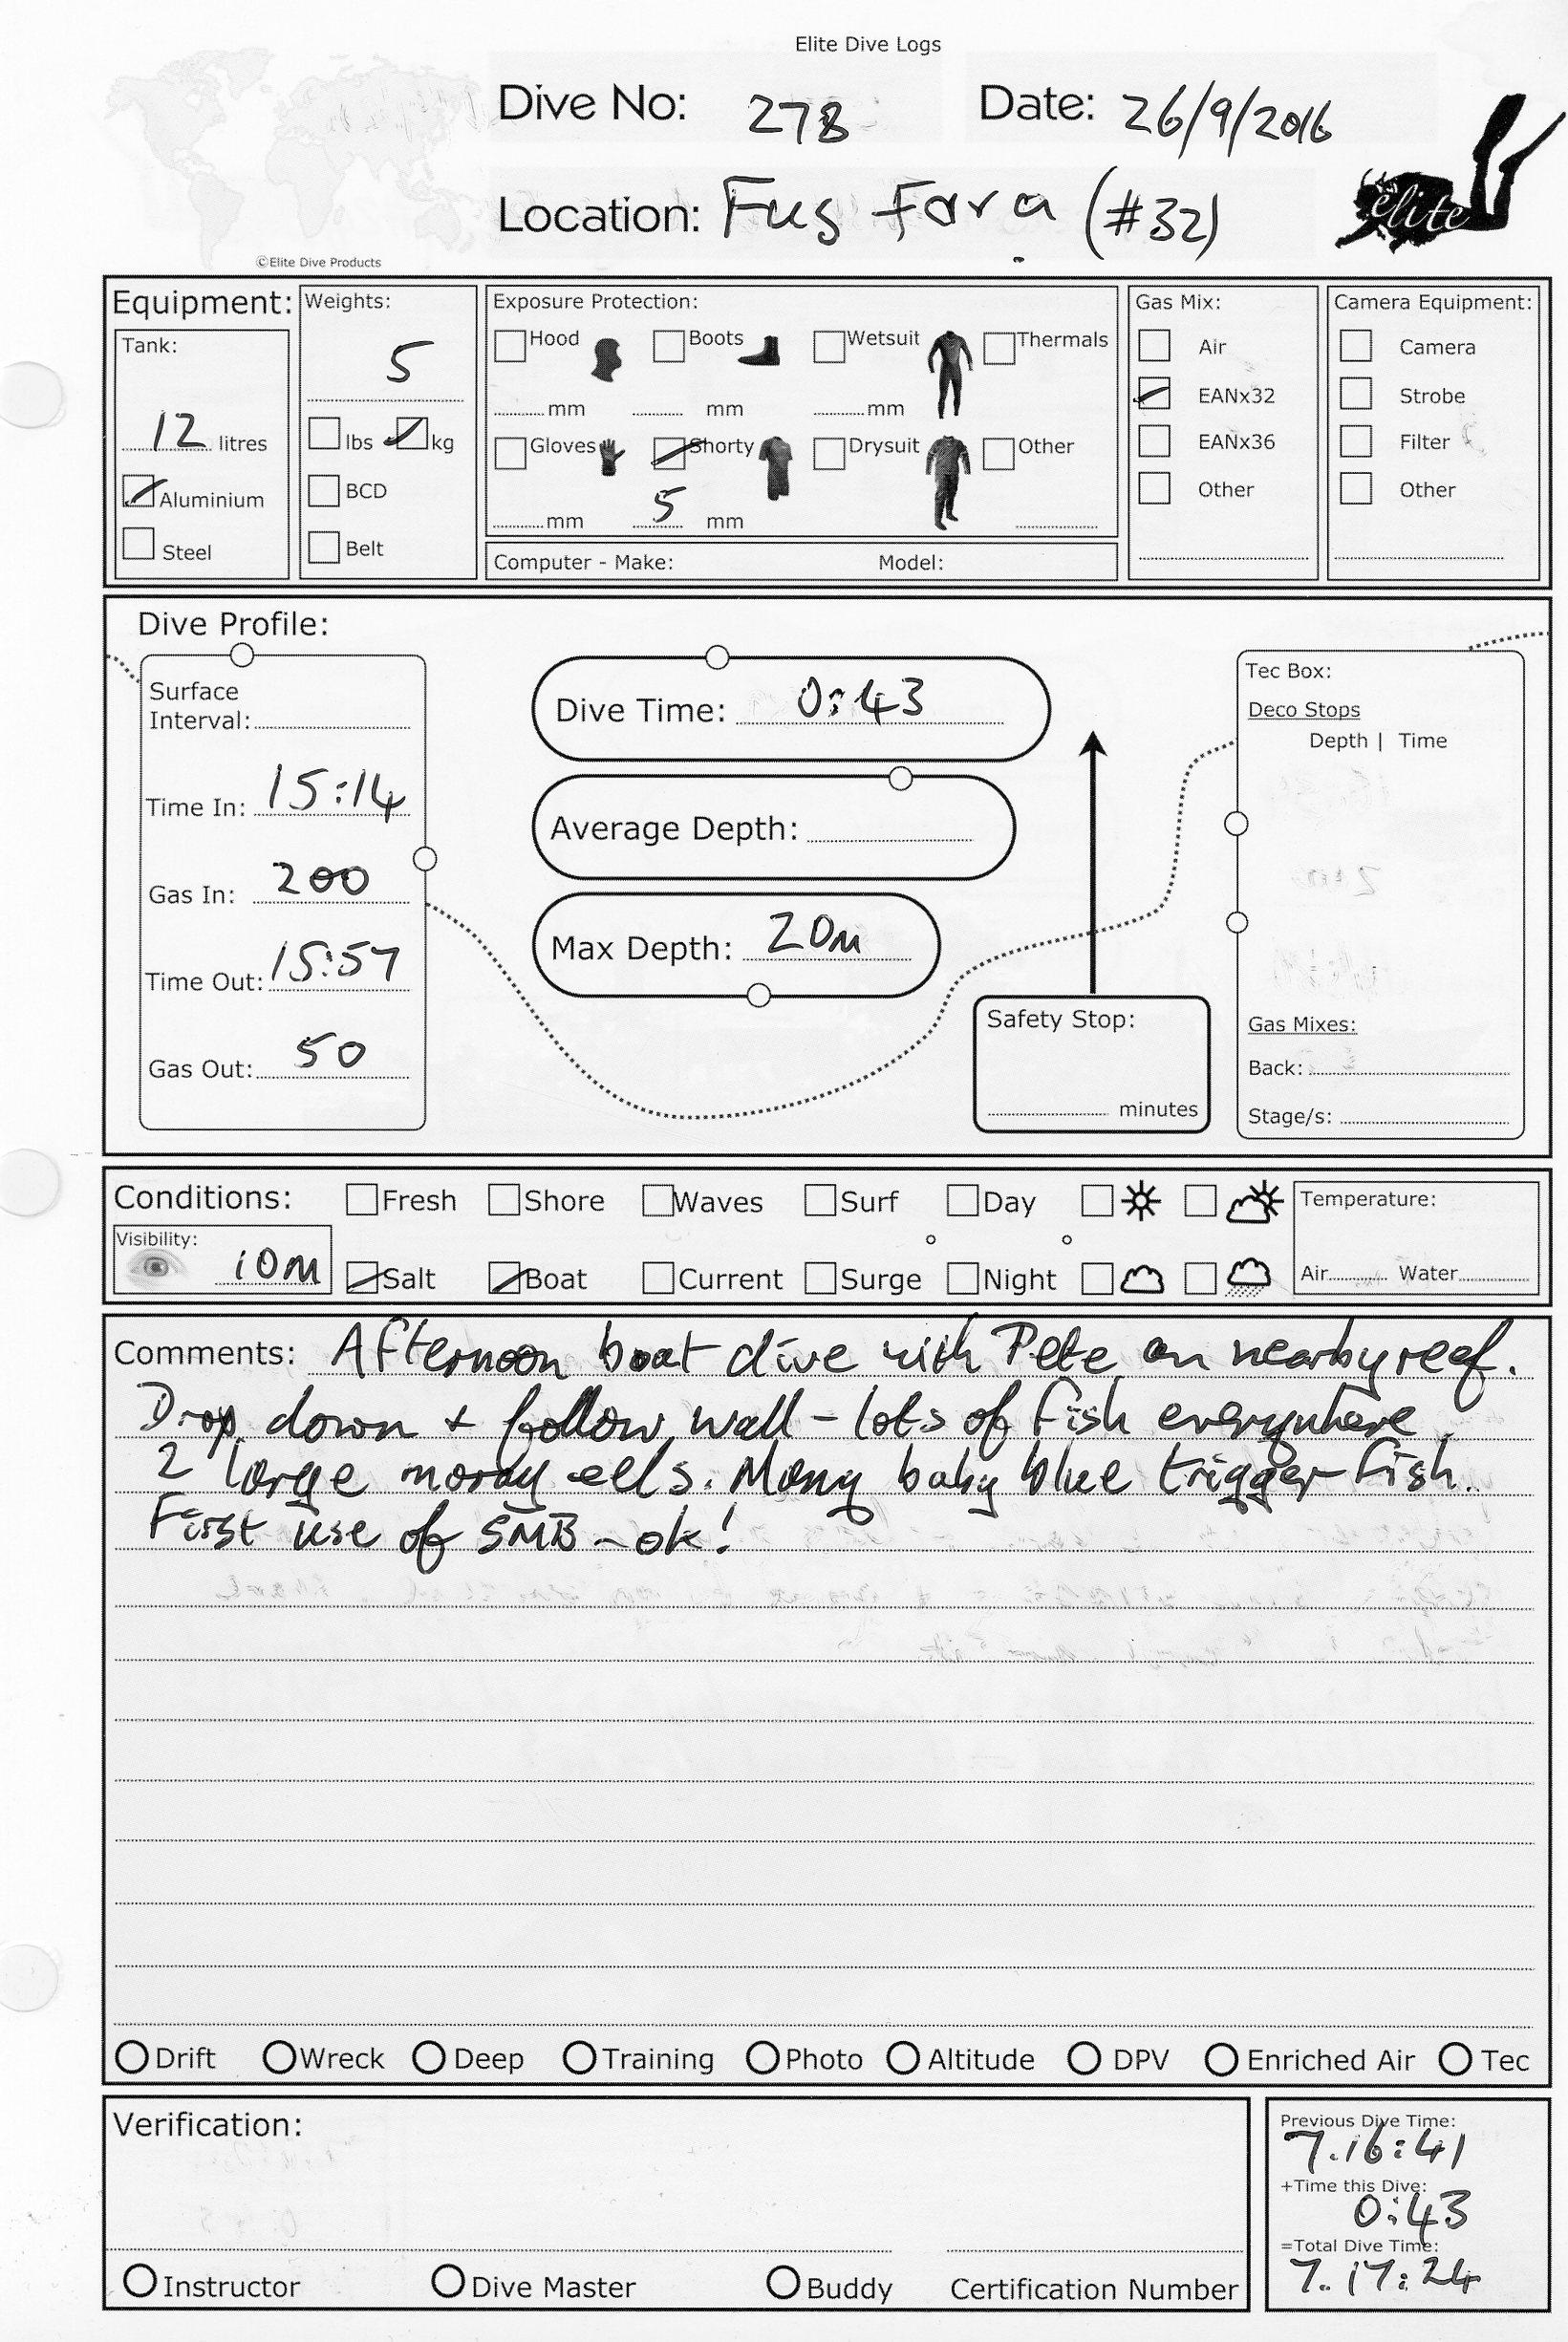 Elite Dive Logs
Dive No: 278 Date: 26/9/2016
Location: Fus Fara (#32)
elite
©Elite Dive Products
Equipment: Weights: Exposure Protection: Gas Mix: Camera Equipment:
Tank: 5 Hood Boots Wetsuit Thermals Air Camera
mm mm mm EANx32 Strobe
12 litres lbs kg Gloves Shorty Drysuit Other EANx36 Filter
Aluminium BCD mm 5 mm Other Other
Steel Belt Computer - Make: Model:
Dive Profile:
Surface
Interval:
Time In: 15:14
Gas In: 200
Time Out: 15:57
Gas Out: 50
Dive Time: 0:43
Average Depth:
Max Depth: 20m
Safety Stop:
minutes
Tec Box:
Deco Stops
Depth | Time
Gas Mixes:
Back:
Stage/s:
Conditions: Fresh Shore Waves Surf Day Temperature:
Visibility: 10m Salt Boat Current Surge Night Air Water
Comments: Afternoon boat dive with Pete on nearby reef.
Drop down + follow wall - lots of fish everywhere
2 large moray eels. Many baby blue trigger fish.
First use of SMB - ok!
Drift Wreck Deep Training Photo Altitude DPV Enriched Air Tec
Verification:
Instructor Dive Master Buddy Certification Number
Previous Dive Time:
7.16:41
+Time this Dive:
0:43
=Total Dive Time:
7.17:24